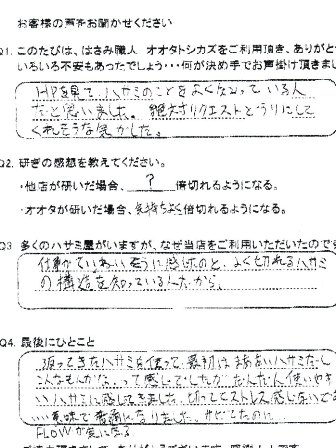 お客様の声をお聞かせください
Q1. このたびは、はさみ職人 オオタトシカズをご利用頂き、ありがと
いろいろ不安もあったでしょう・・・何が決め手でお声掛け頂きまし
HPを見て、ハサミのことをよく知っている人
だと思いました。絶対リクエストどうりにして
くれそうな気がした。
Q2. 研ぎの感想を教えてください。
・他店が研いだ場合、 ? 倍切れるようになる。
・オオタが研いだ場合、気持ちよく倍切れるようになる。
Q3 多くのハサミ屋がいますが、なぜ当店をご利用いただいたのです
仕事がていねいそうに感じたのと、よく切れるハサミ
の構造を知っている人だから。
Q4. 最後にひとこと
返ってきたハサミを使って、最初はまああいハサミだし
こんなもんかな、って感じでしたがだんだん使いやす
いハサミに感じてきました。切っててストレス感じないで
意味で普通になりました。サビてたのに
FLOWが気になる